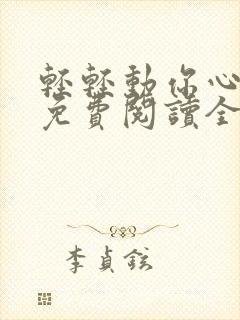 輕輕動你心
免費閱讀全
李貞鉉